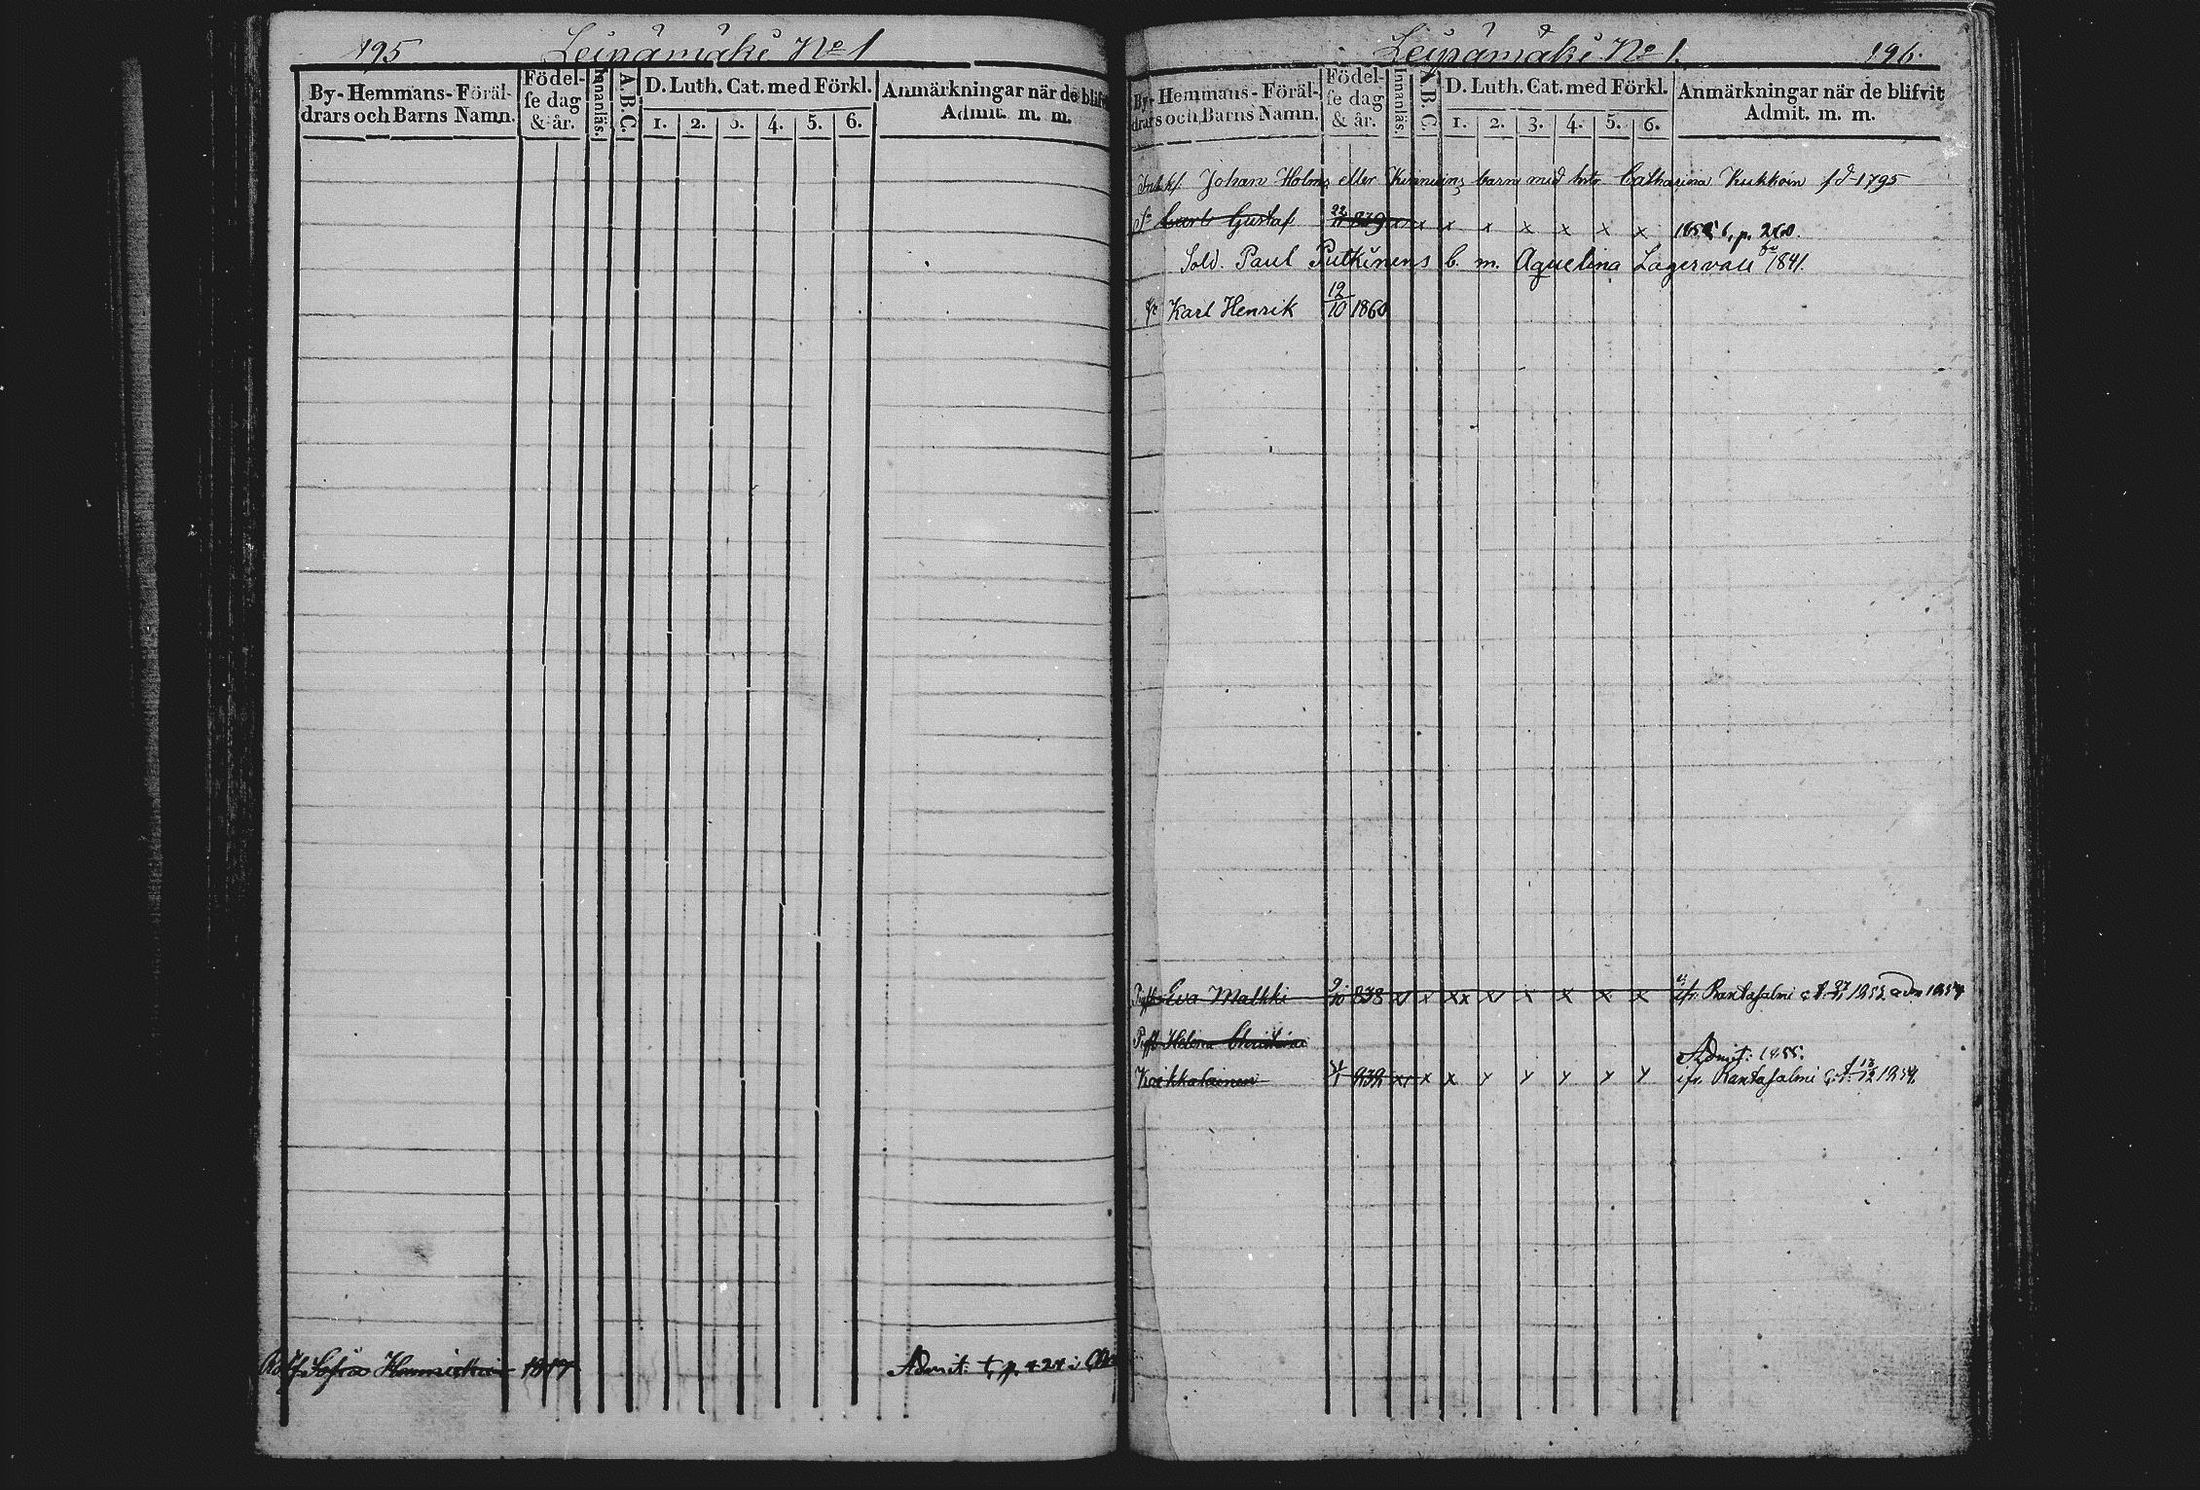 195 Leipämäki No 1
By-Hemmans-Föräl-
drars och Barns Namn.
Födel-
se dag
& år.
Innanläs.
A.B.C.
D. Luth. Cat. med Förkl.
1. 2. 3. 4. 5. 6.
Anmärkningar när de blifvit
Admit. m. m.
Sofia 1817 Admit: p. 424 i
Leipämäki No 1. 196.
By-Hemmans-Föräl-
drars och Barns Namn.
Födel-
se dag
& år.
Innanläs.
A.B.C.
D. Luth. Cat. med Förkl.
1. 2. 3. 4. 5. 6.
Anmärkningar när de blifvit
Admit. m. m.
Johan Holms eller barn med Catharina Kukkoin fd 1795
Sn Carl Gustaf 22/11 839 x x x x x x x p. 260.
Sold. Paul Putkinens b. m. Aquelina Lagervall 1841.
Karl Henrik 12/10 1860
Eva Malkki 9/10 838 x x xx x x x x x ifr. Rantasalmi 1852 adm 1854
Helena Christina
Admit: 1855.
Kaikkalainen 839 x x x x x x x x ifr. Rantasalmi 13/12 1854